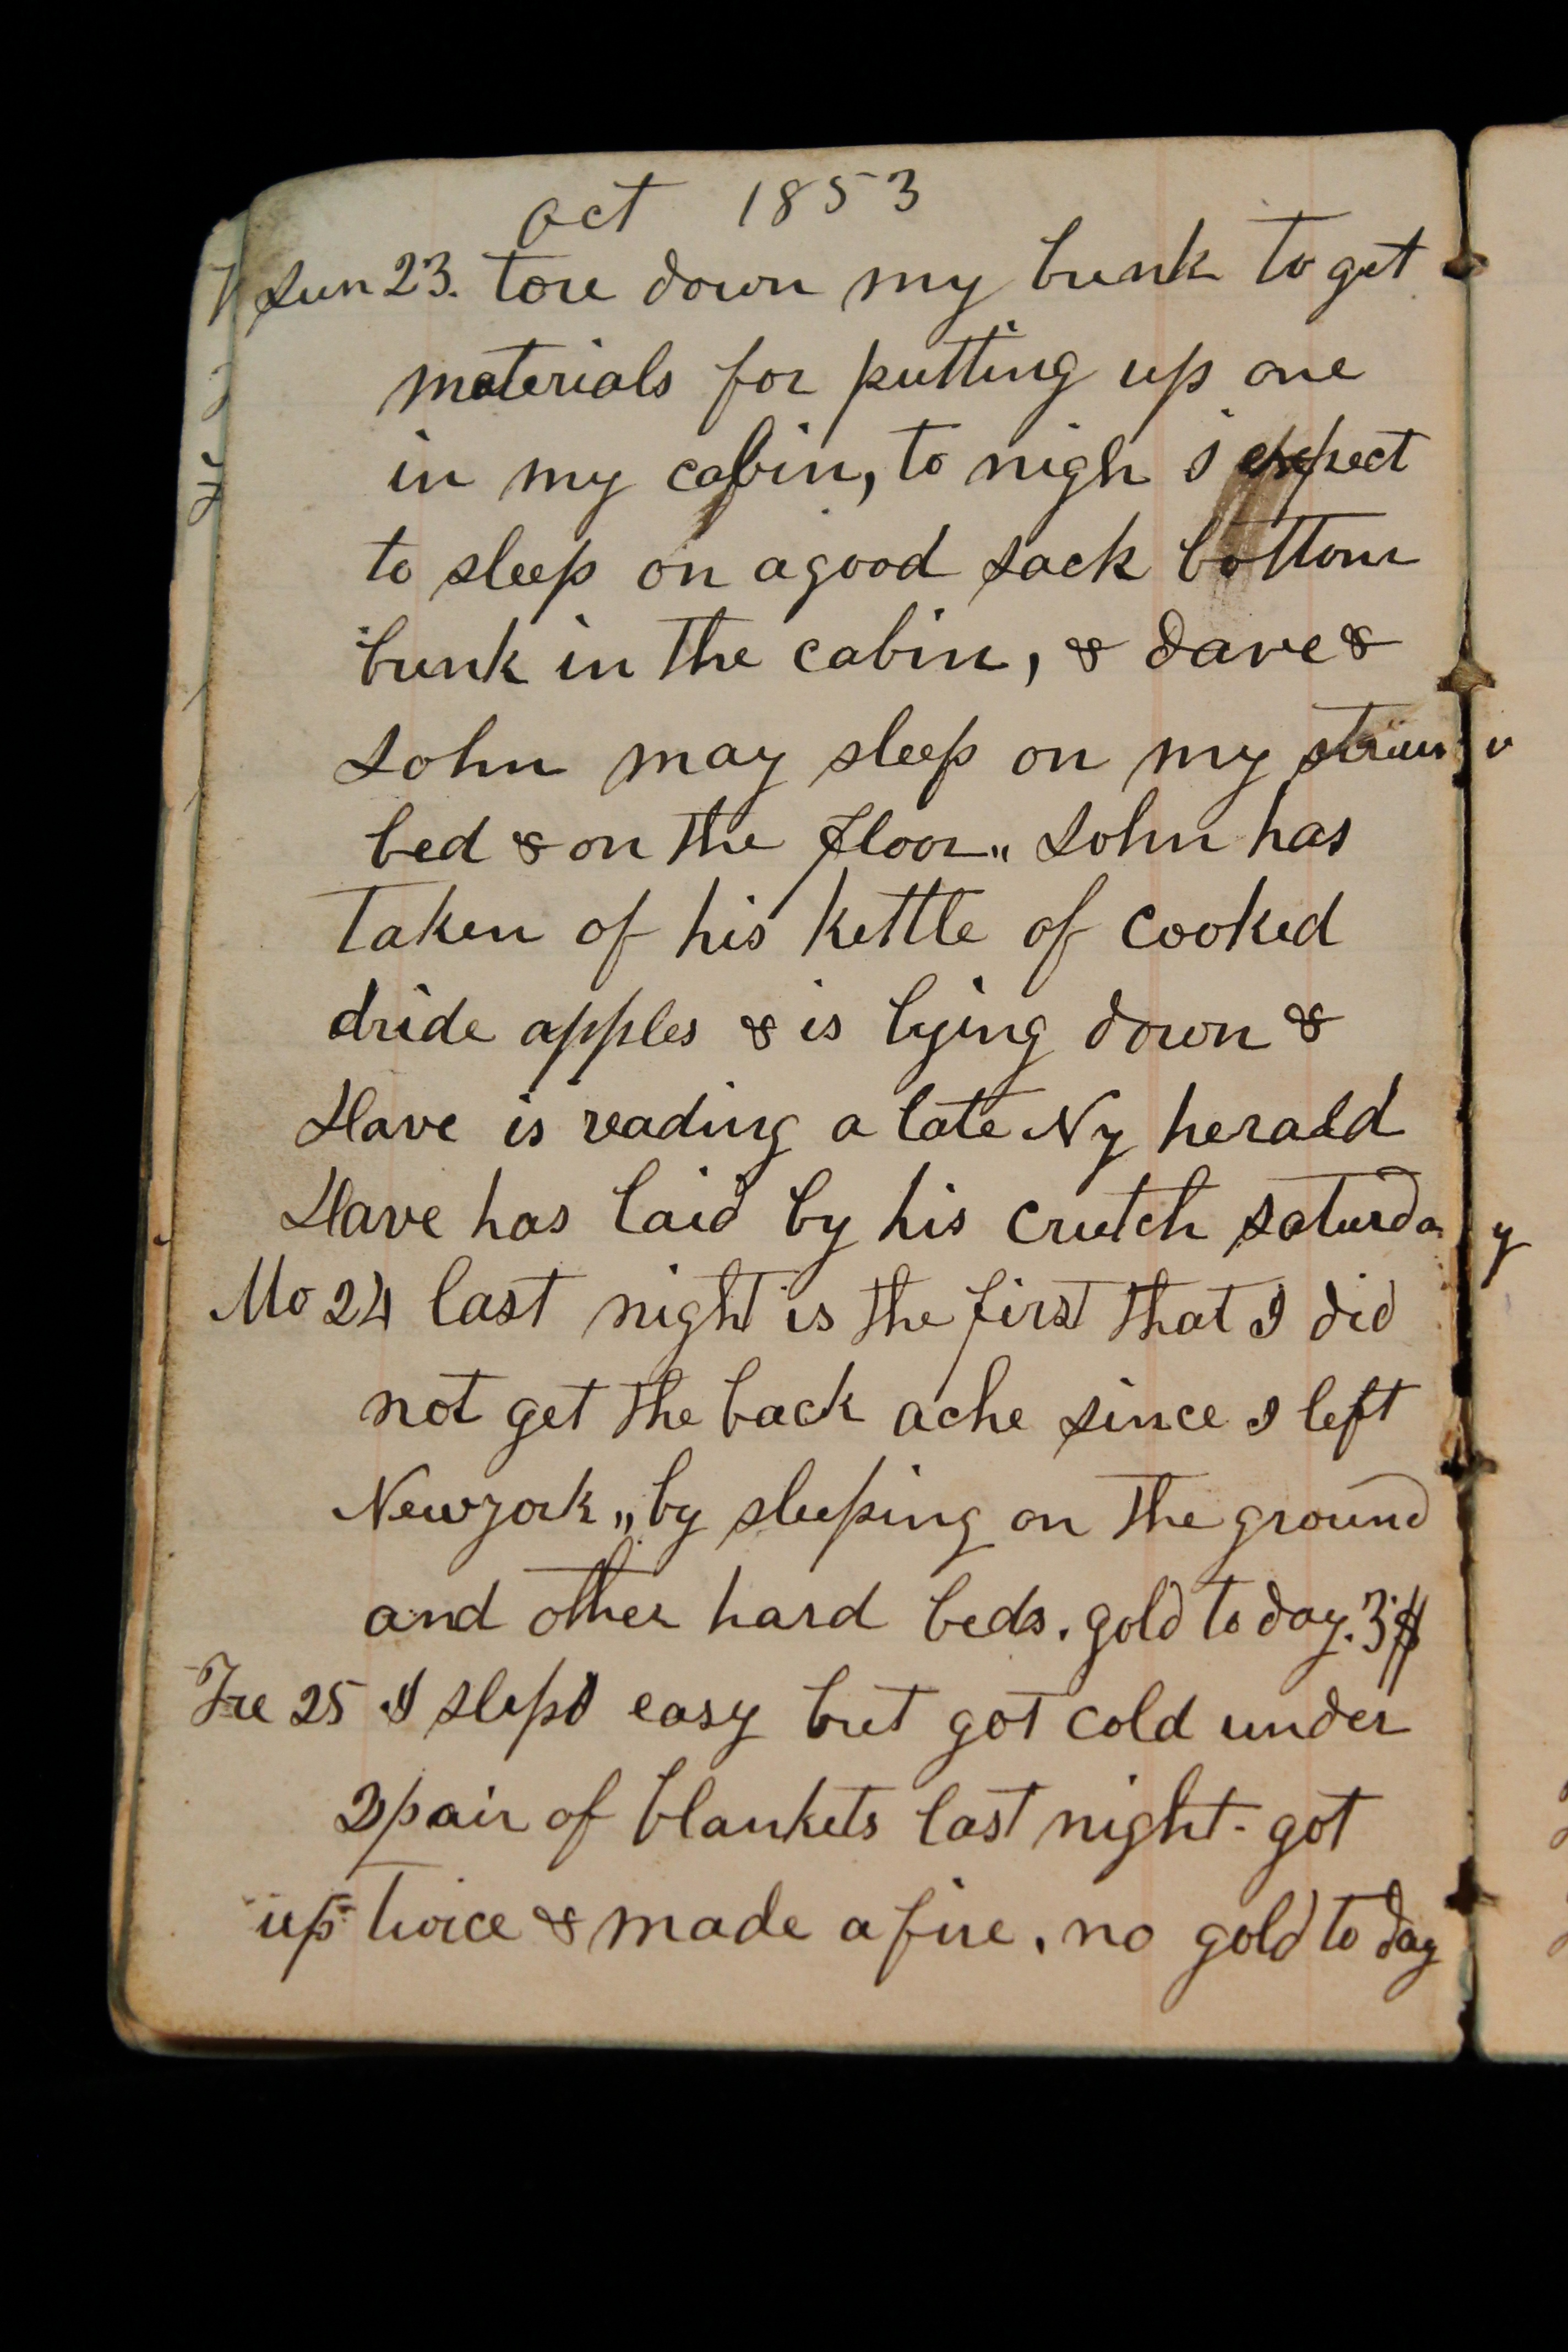 oct 1853
Sun 23. tore down my bunk to get
materials for putting up one
in my cabin, to nigh i expect
to sleep on a good sack bottom
bunk in the cabin, & dave &
John may sleep on my straw
bed & on the floor„ John has
taken of his kettle of cooked
dride apples & is lying down &
Dave is reading a late Ny herald
Dave has laid by his crutch saturday
Mo 24 last night is the first that I did
not get the back ache since I left
Newyork „ by sleeping on the ground
and other hard beds. gold to day. 3$
Tue 25 I slept easy but got cold under
2 pair of blankets last night - got
up twice & made a fire. no gold to day